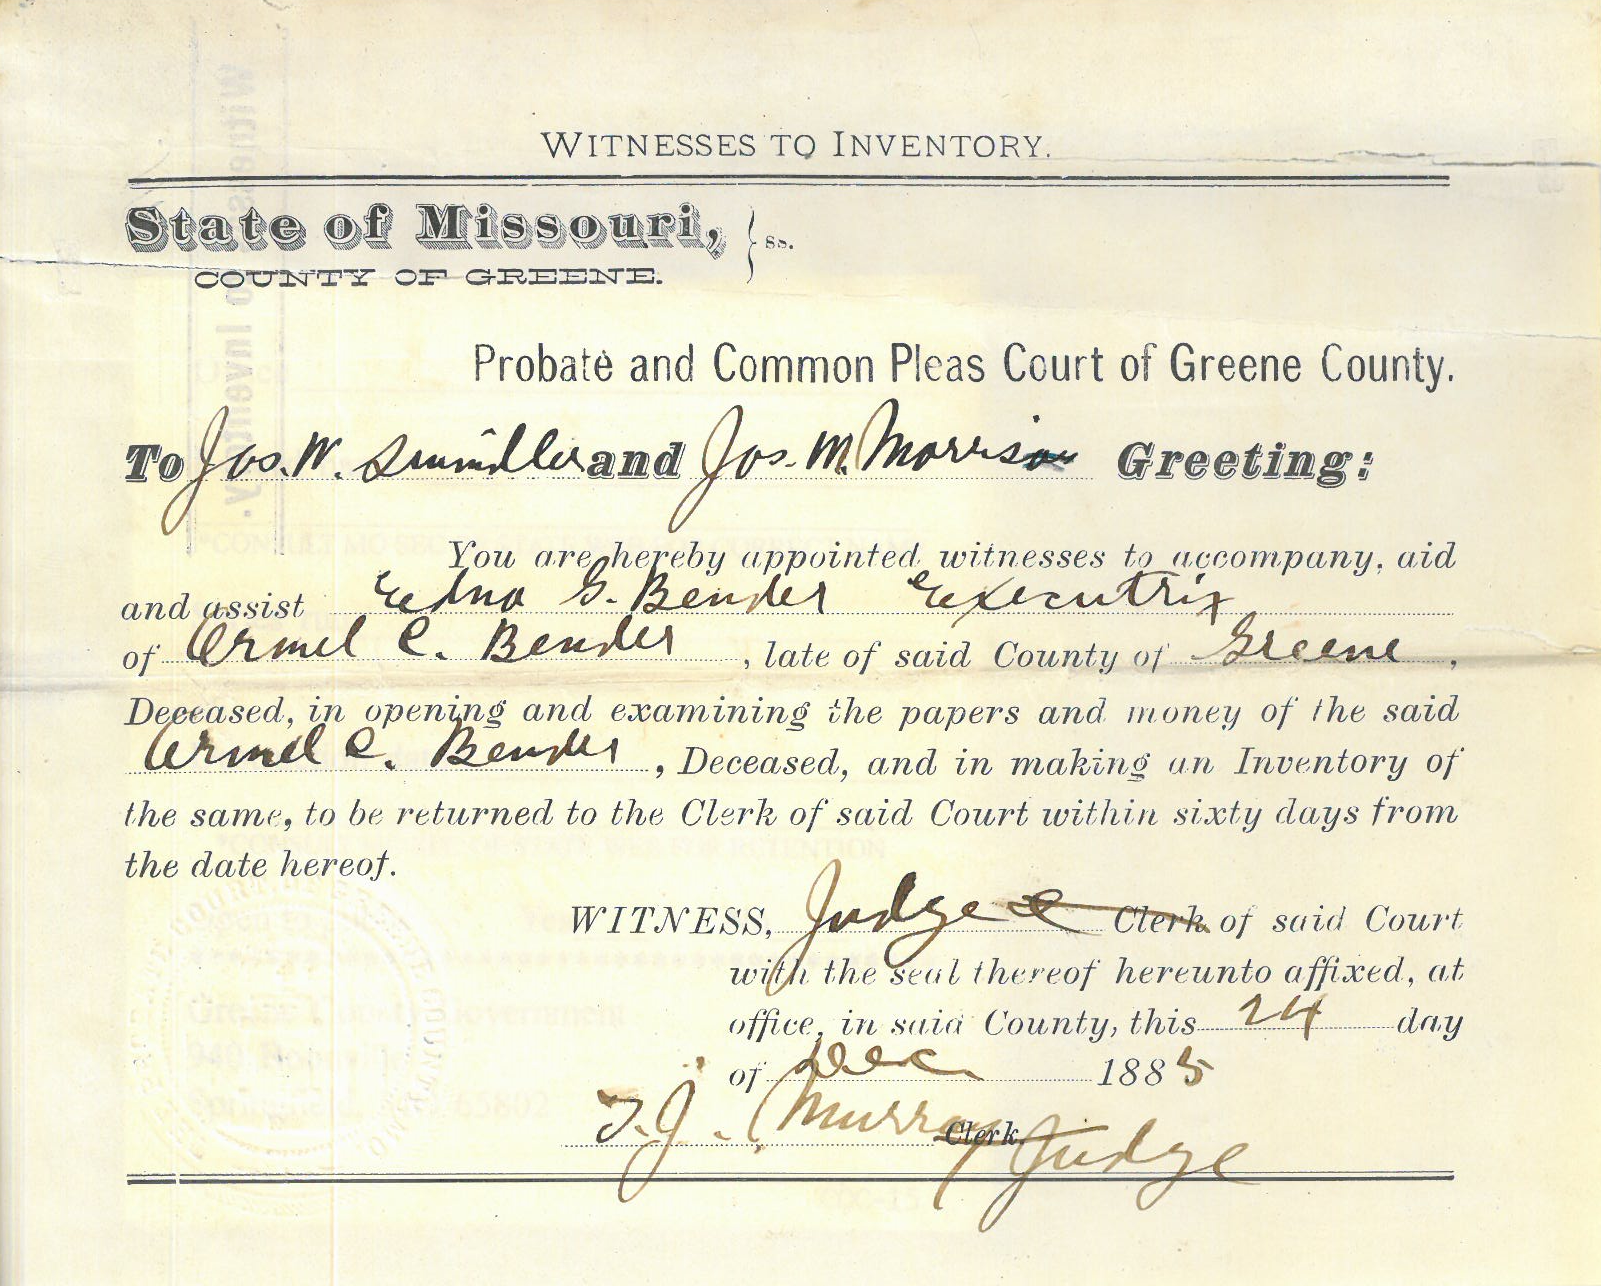 WITNESSES TO INVENTORY.
State of Missouri, } ss.
COUNTY OF GREENE.
Probate and Common Pleas Court of Greene County.
To Jos. W. and Jos. M. Morrison Greeting:
You are hereby appointed witnesses to accompany, aid
and assist Edna G. Bender Executrix
of Ormel C. Bender, late of said County of Greene,
Deceased, in opening and examining the papers and money of the said
Ormel C. Bender, Deceased, and in making an Inventory of
the same, to be returned to the Clerk of said Court within sixty days from
the date hereof.
WITNESS, Judge Clerk of said Court
with the seal thereof hereunto affixed, at
office, in said County, this 24 day
of Dec 1885
T. J. Murray Clerk. Judge